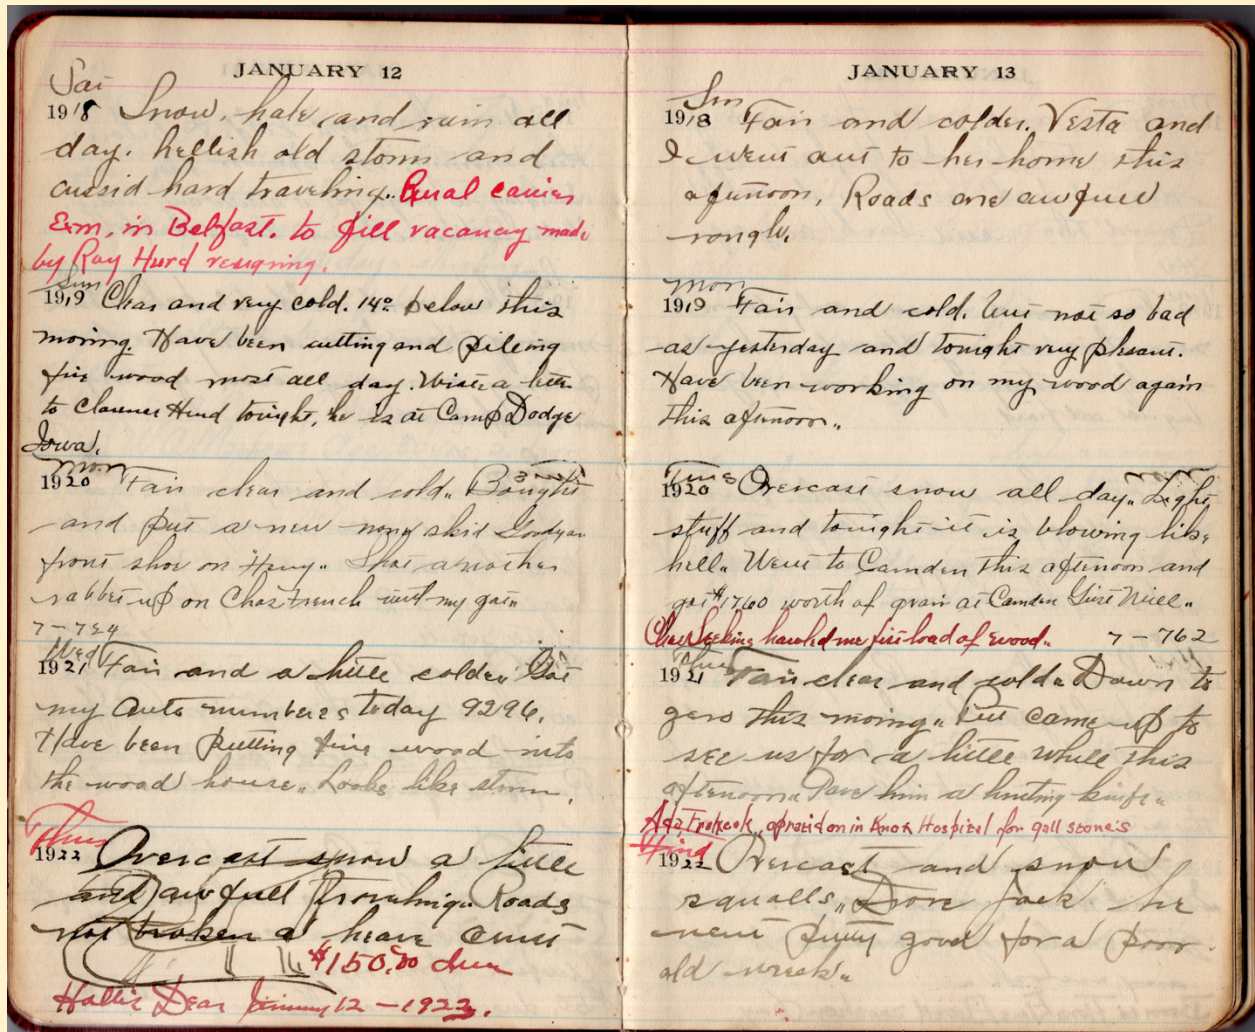 JANUARY 12
Sat
1918 Snow, hale and rain all
day. hellish old storm and
cussid hard traveling. Rural carrier
Exm, in Belfast. to fill vacancy made
by Ray Hurd resigning.
Sun
1919 Clear and very cold. 14° below this
moring. Have been cutting and pileing
fire wood most all day. Wrote a letter
to Clarence Hurd tonight, he is at Camp Dodge
Iowa.
Mon
1920 Fair clear and cold. Bought
and put a new none skid Goodyear
front shoe on "Henry". Shot another
rabbet up on Chas French with my
7-724
Wed
1921 Fair and a little colder. Got
my Auto numbers today 9296.
Have been putting fire wood into
the wood house. Looks like storm.
Thurs
1922 Overcast snow a little
and awfull Traveling. Roads
not broken a heave crust
$150.00 due
Hollis Dear January 12 - 1923.
JANUARY 13
Sun
1918 Fair and colder. Vesta and
I went out to her home this
afternoon. Roads are awfull
rough.
Mon
1919 Fair and cold. but not so bad
as yesterday and tonight very pleasant.
Have been working on my wood again
this afternoon.
Tues
1920 Overcast snow all day. Light
stuff and tonight it is blowing like
hell. Went to Camden this afternoon and
got $17.60 worth of grain at Camden Grist Mill.
hauled me first load of wood. 7-762
Thurs
1921 Fair clear and cold. Down to
zero this moring. came up to
see us for a little while this
afternoon. Gave him a hunting knife.
opration in Knox Hospital for gall stone's
Frid
1922 Overcast and snow
squalls. Drove Jack. he
went pretty good for a poor
old wreck.